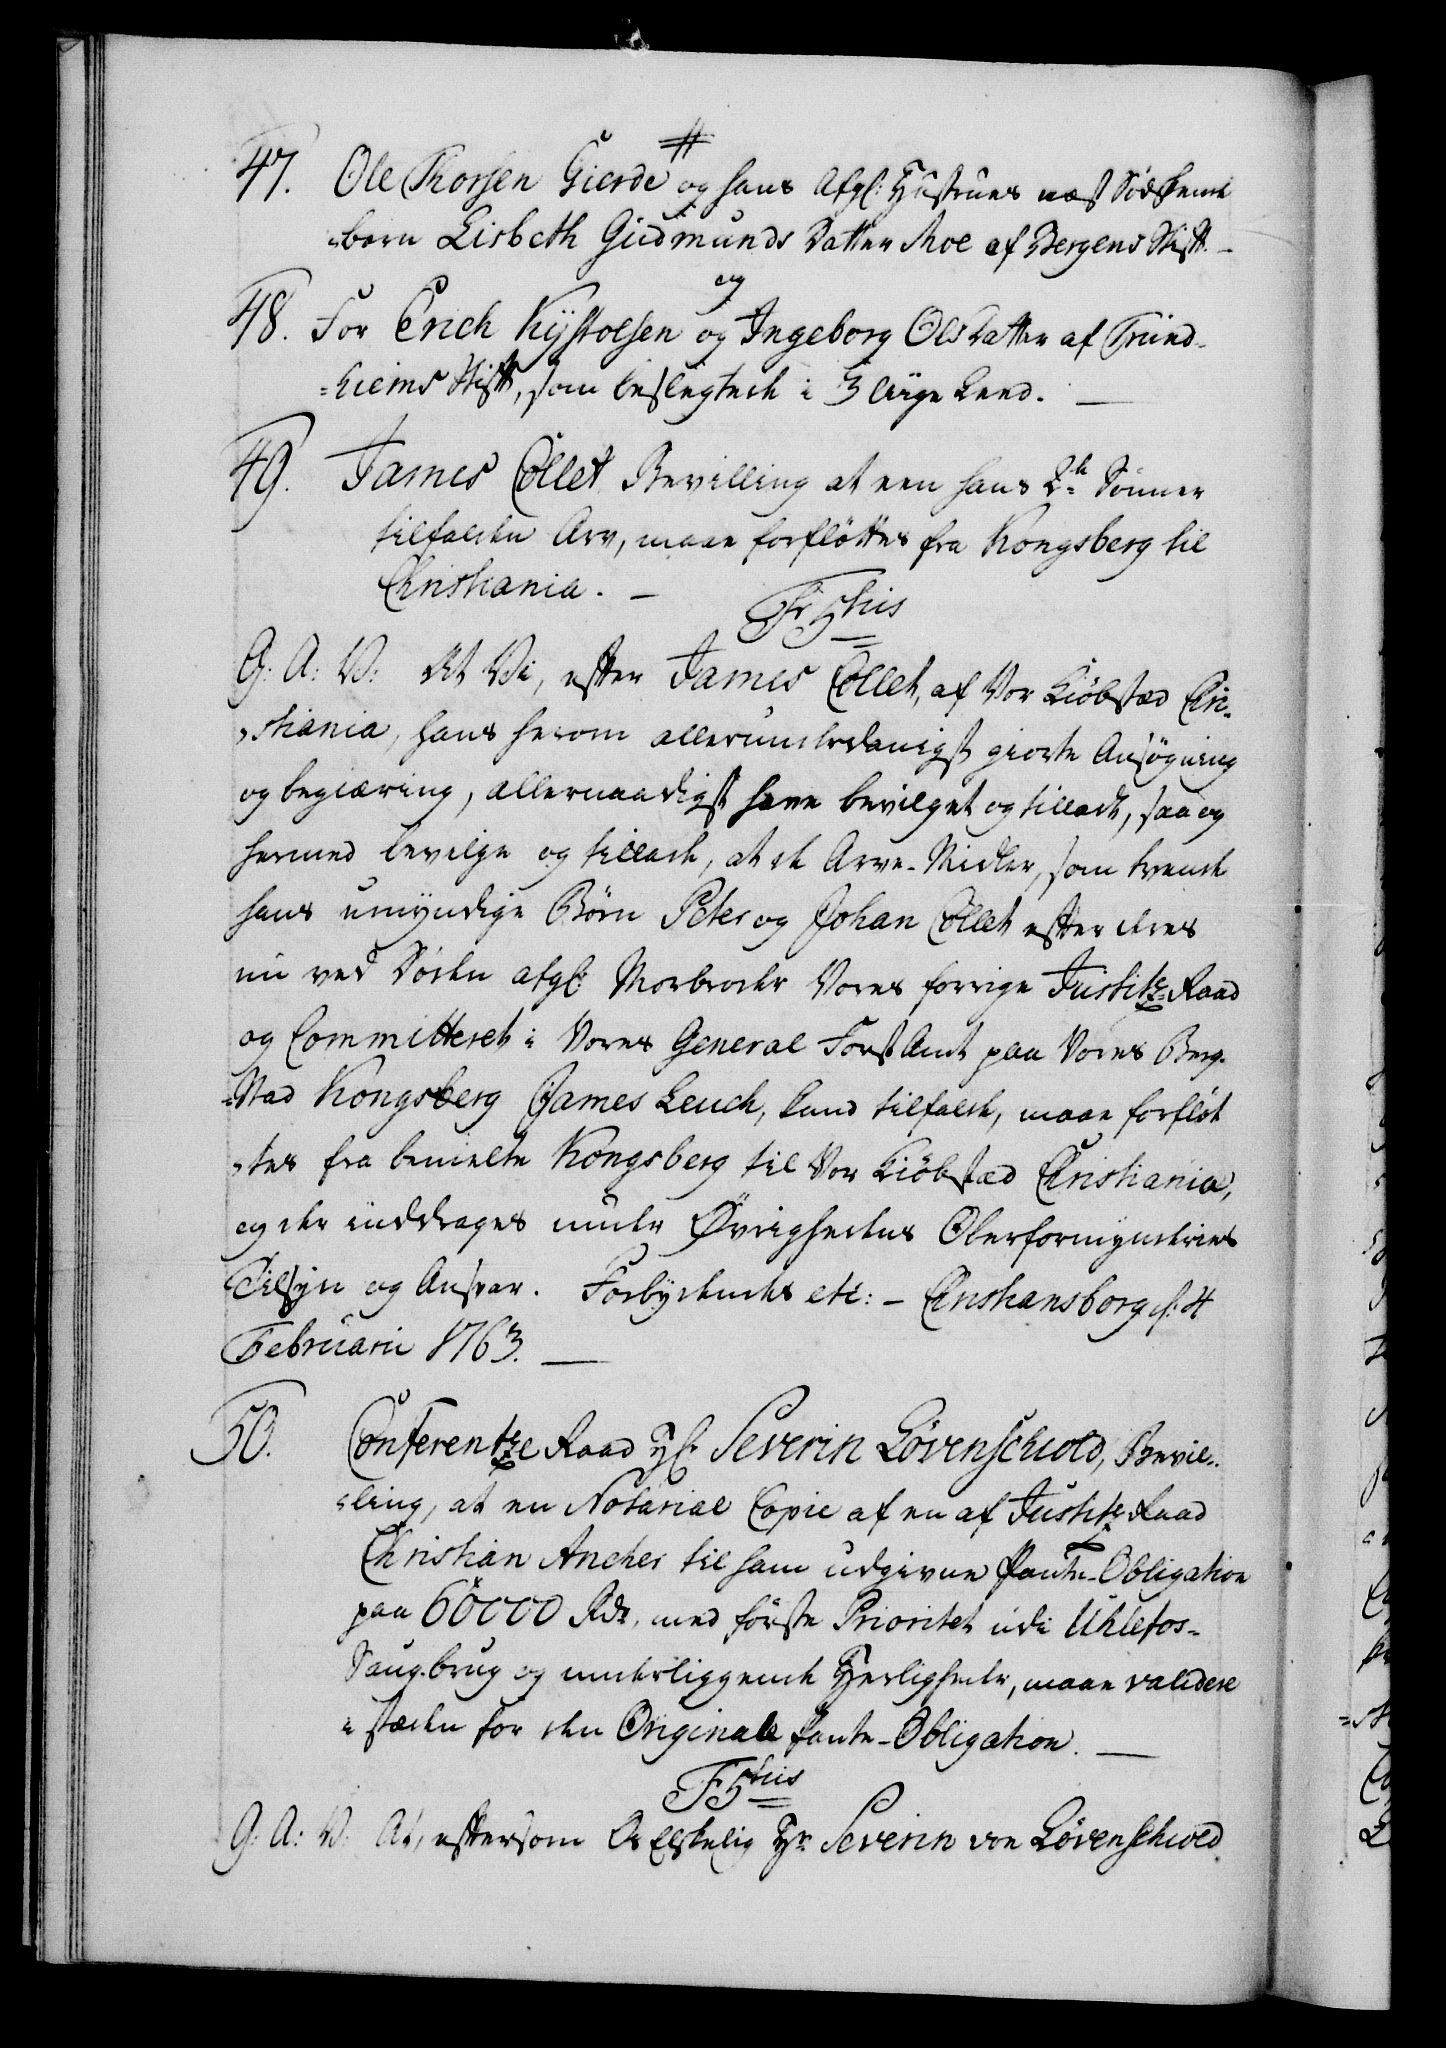 47. Ole Thorsen Gierde # og hans Afgl: Hustrues næst Sødskende
=barn Lisbeth Gudmunds Datter Moe af Bergens Stift. —
48. For Erich Kystolsen og Ingeborg Ols Datter af Trund-
=hiems Stift, som beslegtede i 3 liige Leed. —
49. James Collet Bevilling at een hans 2de Sønner
tilfalden Arv, maae forfløttes fra Kongsberg til
Christiania. —
Fr: 5tus
G: A: V: At Vi, efter James Collet, af Vor Kiøbstæd Chri-
=stiania, hans herom allerunderdanigst giorte Ansøgning
og begiæring, allernaadigst have bevilget og tilladt, saa og
hermed bevilge og tillade, at de Arve-Midler, som tvende
hans umyndige Børn Peter og Johan Collet efter deres
nu ved Døden afgl: Morbroder Vores forrige Justitz-Raad
og Committeret i Vores General Forst Amt paa Vores Berg-
=Stad Kongsberg James Leuch, ere tilfaldt, maae forfløt
=tes fra bemelte Kongsberg til Vor Kiøbstæd Christiania,
og der inddrages under Øvrighedens Oberformynderies
Tilsyn og Ansvar. Forbydendes etc: — Christiansborg d: 4
Februarii 1763. —
50. Conferentze Raad Hr Severin Løvenschiold, Bevil-
=ling, at en Notarial Copie af en af Justitz Raad
Christian Ancher til ham udgivne Pante-Obligation
paa 60000 Rdr, med første Prioritet udi Uhlefos-
Saug-brug og underliggende Herligheder, maae validere
i stæden for den Originale Pante-Obligation. —
F 5tus
G: A: V: At, eftersom Os Elskelig Hr Severin von Løvenschiold